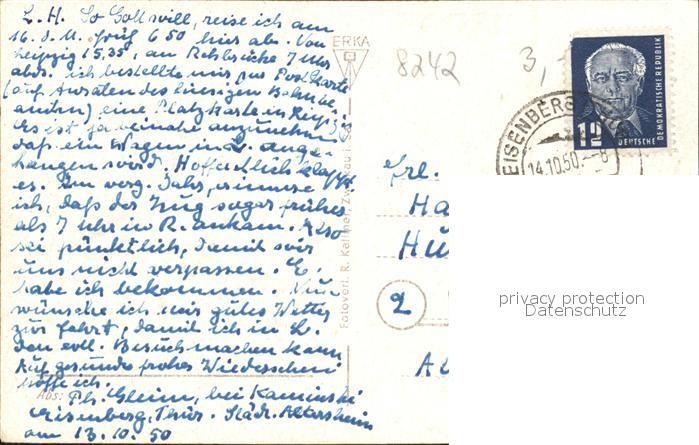 L. H. So Gott will, reise ich am
16. d. M. früh 6 50 hier ab. Von
Leipzig 15,35, an Rehbrücke 7 Uhr
abds. ich bestellte mir per Postkarte
(auf Anraten des hiesigen Bahnbe-
amten) eine Platzkarte in Leipzig
Es ist ja beinahe anzunehmen
daß ein Wagen in L. ange-
hangen wird. Hoffentlich klappt
es. Im verg. Jahr, erinnere
ich, daß der Zug sogar früher
als 7 Uhr in R. ankam. Also
sei pünktlich, damit wir
uns nicht verpassen. E.
habe ich bekommen. Nun
wünsche ich mir gutes Wetter
zur Fahrt, damit ich in L.
den evtl. Besuch machen kann
Auf gesundes frohes Wiedersehen
hoffe ich.
Abs: Ph. Gleim, bei Kaminski
Eisenberg, Thür. Städt. Altersheim
am 13. 10. 50
ERKA
Fotoverl. R. Kallmer, Zw
8242
3,-
12
DEUTSCHE DEMOKRATISCHE REPUBLIK
EISENBERG
14.10.50.--8
Frl.
Ha
Hü
2
privacy protection
Datenschutz